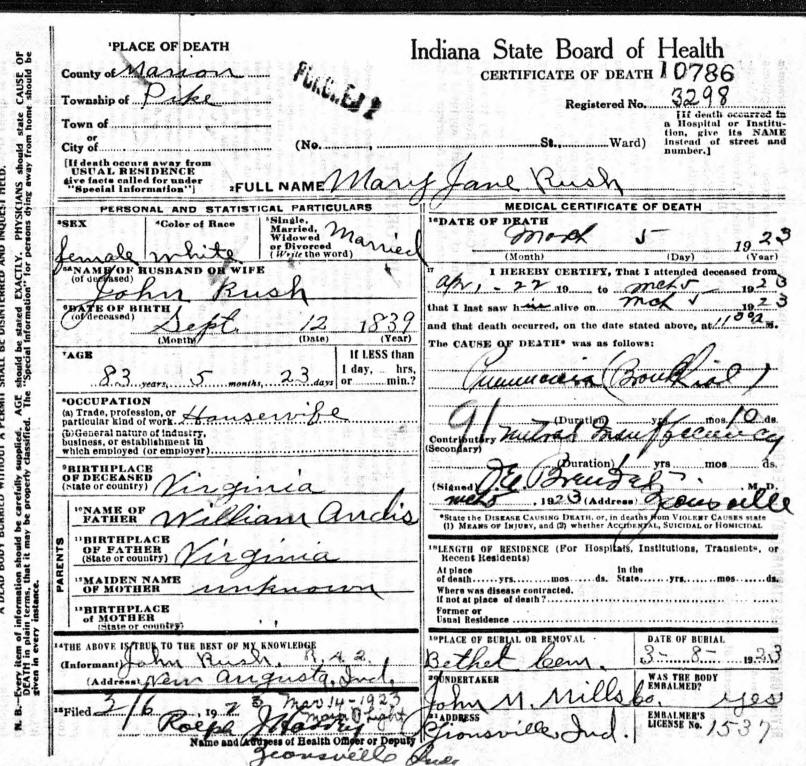 ¹PLACE OF DEATH
County of Marion
Township of Pike
Town of
or
City of
[If death occurs away from
USUAL RESIDENCE
give facts called for under
"Special Information"]
Indiana State Board of Health
CERTIFICATE OF DEATH 10786
Registered No. 3298
[If death occurred in
a Hospital or Institu-
tion, give its NAME
instead of street and
number.]
(No. , St., Ward)
²FULL NAME Mary Jane Rush
PERSONAL AND STATISTICAL PARTICULARS
³SEX
female
⁴Color of Race
white
⁵Single,
Married,
Widowed
or Divorced
(Write the word)
Married
NAME OF HUSBAND OR WIFE
(of deceased)
John Rush
⁶DATE OF BIRTH
(of deceased)
Sept. 12 1839
(Month) (Date) (Year)
⁷AGE
83 years, 5 months, 23 days
If LESS than
1 day, hrs,
or min.?
⁸OCCUPATION
(a) Trade, profession, or
particular kind of work Housewife
(b) General nature of industry,
business, or establishment in
which employed (or employer)
⁹BIRTHPLACE
OF DECEASED
(State or country)
Virginia
PARENTS
¹⁰NAME OF
FATHER
William Andis
¹¹BIRTHPLACE
OF FATHER
(State or country)
Virginia
¹²MAIDEN NAME
OF MOTHER
unknown
¹³BIRTHPLACE
of MOTHER
(State or country)
" "
¹⁴THE ABOVE IS TRUE TO THE BEST OF MY KNOWLEDGE
(Informant) John Rush. R. R. 2.
(Address) New Augusta, Ind.
¹⁵Filed 3/6, 1923 Mar 14-1923
Name and Address of Health Officer or Deputy
Zionsville Ind
MEDICAL CERTIFICATE OF DEATH
¹⁶DATE OF DEATH
March 5 1923
(Month) (Day) (Year)
¹⁷ I HEREBY CERTIFY, That I attended deceased from
Apr. - 22 19 to Mch 5 - 1923
that I last saw h alive on Mch 5 1923
and that death occurred, on the date stated above, at m.
The CAUSE OF DEATH* was as follows:
Pneumonia (Bronchial)
91 (Duration) yrs mos 10 ds.
Contributory Mitral Insufficiency
(Secondary)
(Duration) yrs mos ds.
(Signed) M. D.
Mch 5 1923 (Address) Zionsville
*State the DISEASE CAUSING DEATH, or, in deaths from VIOLENT CAUSES state
(1) MEANS OF INJURY, and (2) whether ACCIDENTAL, SUICIDAL or HOMICIDAL
¹⁸LENGTH OF RESIDENCE (For Hospitals, Institutions, Transients, or
Recent Residents)
At place
of death yrs. mos ds.
In the
State yrs. mos ds.
Where was disease contracted.
If not at place of death?
Former or
Usual Residence
¹⁹PLACE OF BURIAL OR REMOVAL
Bethel Cem.
DATE OF BURIAL
3-8-1923
²⁰UNDERTAKER
John M. Mills Co.
WAS THE BODY
EMBALMED?
yes
²¹ADDRESS
Zionsville Ind.
EMBALMER'S
LICENSE No. 1537
A DEAD BODY BURIED WITHOUT A PERMIT SHALL BE DISINTERRED AND INQUEST HELD.
N. B.—Every item of information should be carefully supplied. AGE should be stated EXACTLY. PHYSICIANS should state CAUSE OF
DEATH in plain terms, that it may be properly classified. The "Special Information" for persons dying away from home should be
given in every instance.